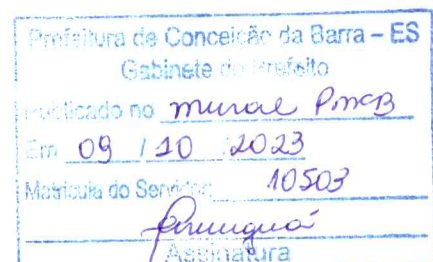 Prefeitura de Conceição da Barra – ES
Gabinete do Prefeito
Publicado no mural PMCB
Em 09 / 10 2023
Matrícula do Servidor 10503
Assinatura